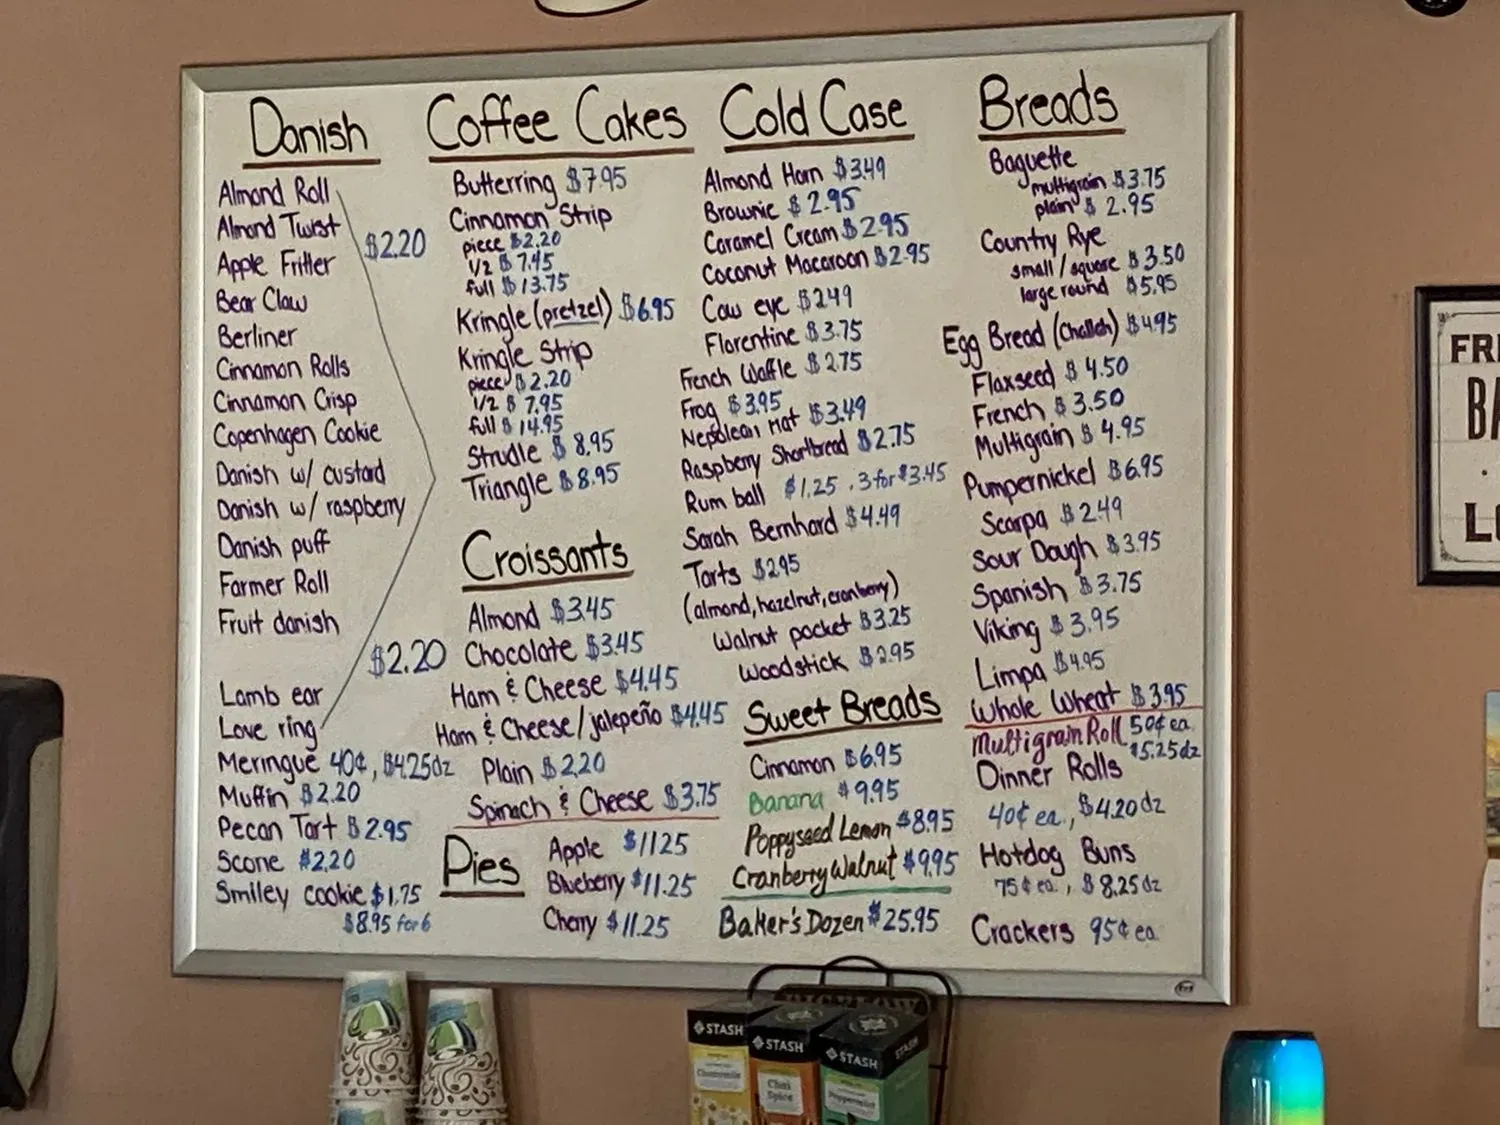 Danish
Almond Roll
Almond Twist
$2.20
Apple Fritter
Bear Claw
Berliner
Cinnamon Rolls
Cinnamon Crisp
Copenhagen Cookie
Danish w/ custard
Danish w/ raspberry
Danish puff
Farmer Roll
Fruit danish
$2.20
Lamb ear
Love ring
Meringue 40¢, $4.25dz
Muffin $2.20
Pecan Tart $2.95
Scone $2.20
Smiley cookie $1.75
$8.95 for 6
Coffee Cakes
Butterring $7.95
Cinnamon Strip
piece $2.20
1/2 $7.45
full $13.75
Kringle (pretzel) $6.95
Kringle Strip
piece $2.20
1/2 $7.95
full $14.95
Strudle $8.95
Triangle $8.95
Croissants
Almond $3.45
Chocolate $3.45
Ham & Cheese $4.45
Ham & Cheese/jalepeño $4.45
Plain $2.20
Spinach & Cheese $3.75
Pies
Apple $11.25
Blueberry $11.25
Cherry $11.25
Cold Case
Almond Horn $3.49
Brownie $2.95
Caramel Cream $2.95
Coconut Macaroon $2.95
Cow eye $2.49
Florentine $3.75
French Waffle $2.75
Frog $3.95
Nepolean Hat $3.49
Raspberry Shortbread $2.75
Rum ball $1.25 . 3 for $3.45
Sarah Bernhard $4.49
Tarts $2.95
(almond, hazelnut, cranberry)
Walnut pocket $3.25
Woodstick $2.95
Sweet Breads
Cinnamon $6.95
Banana $9.95
Poppyseed Lemon $8.95
Cranberry Walnut $9.95
Baker's Dozen $25.95
Breads
Baguette
multigrain $3.75
plain $2.95
Country Rye
small/square $3.50
large round $5.95
Egg Bread (Challah) $4.95
Flaxseed $4.50
French $3.50
Multigrain $4.95
Pumpernickel $6.95
Scarpa $2.49
Sour Dough $3.95
Spanish $3.75
Viking $3.95
Limpa $4.95
Whole Wheat $3.95
Multigrain Roll 50¢ ea.
$5.25dz
Dinner Rolls
40¢ ea., $4.20dz
Hotdog Buns
75¢ ea., $8.25dz
Crackers 95¢ ea
FR
BA
L
STASH
Chamomile
STASH
Chai
Spice
STASH
Peppermint